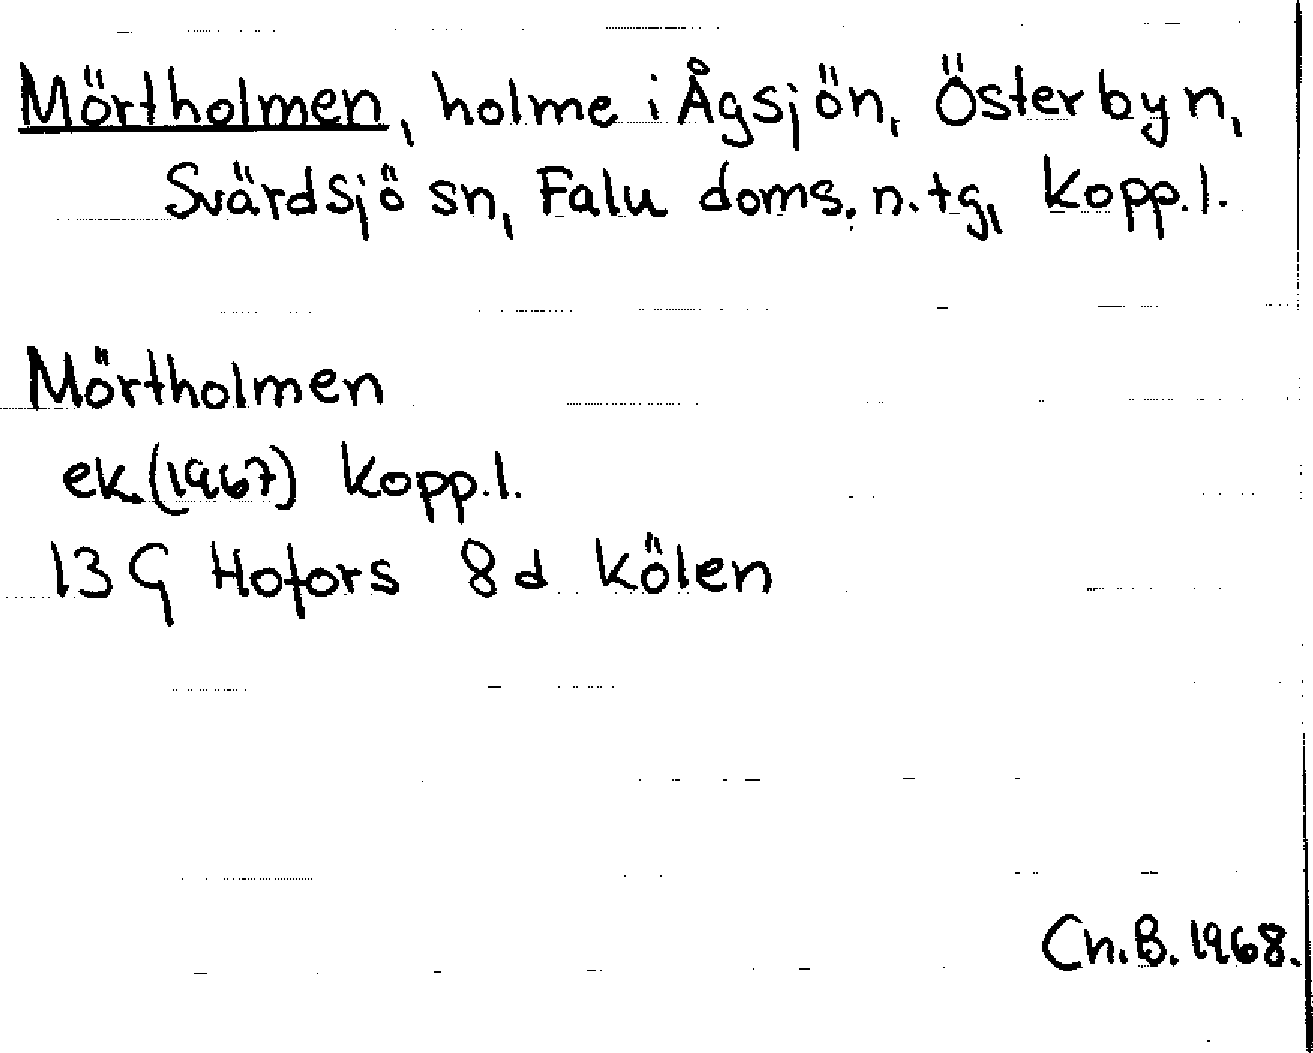 Mörtholmen, holme i Ågsjön, Österbyn,
Svärdsjö sn, Falu doms. n. tg, Kopp. l.
Mörtholmen
ek. (1967) Kopp. l.
13 G Hofors 8 d Kölen
Ch. B. 1968.